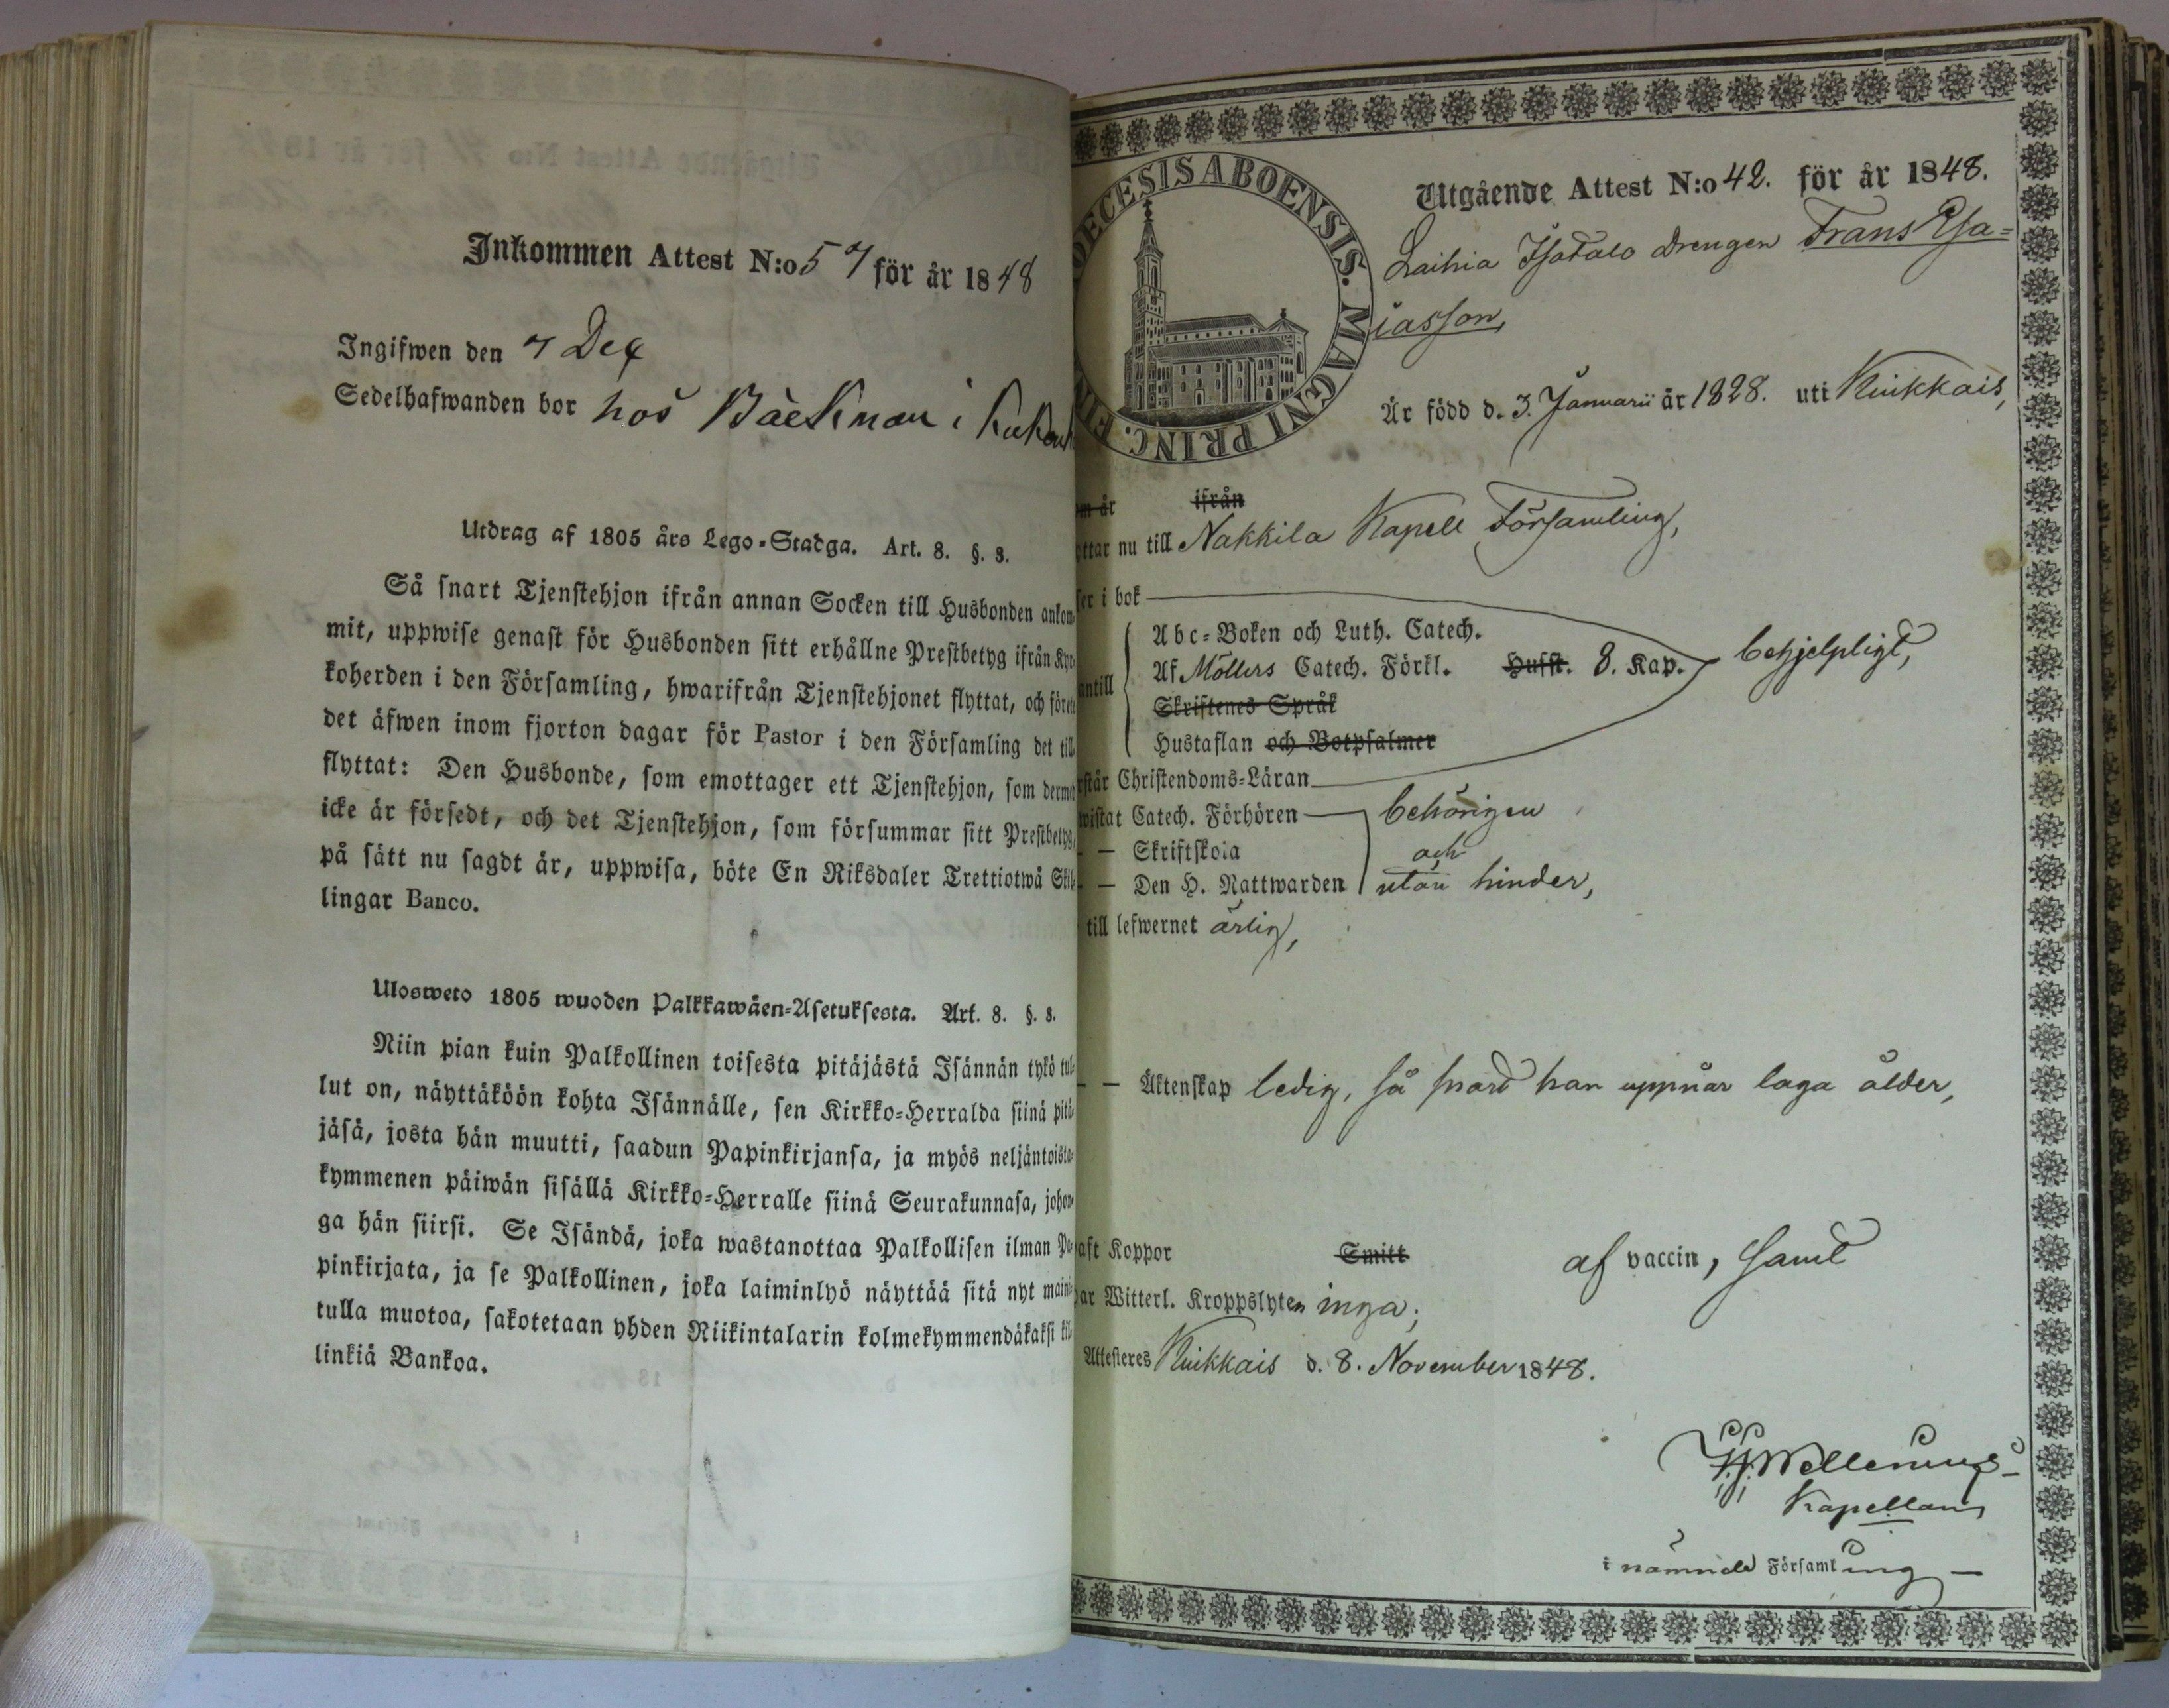 Inkommen Attest N:o 57 för år 1848
Ingifwen den 7 Dec
Sedelhafwanden bor hos Bäckman i
Utdrag af 1805 års Lego-Stadga. Art. 8. §. 8.
Så snart Tjenstehjon ifrån annan Socken till Husbonden ankom-
mit, uppwise genast för Husbonden sitt erhållne Prestbetyg ifrån Kyr-
koherden i den Församling, hwarifrån Tjenstehjonet flyttat, och förete
det äfwen inom fjorton dagar för Pastor i den Församling det till-
flyttat: Den Husbonde, som emottager ett Tjenstehjon, som dermed
icke är försedt, och det Tjenstehjon, som försummar sitt Prestbetyg,
på sätt nu sagdt är, uppwisa, böte En Riksdaler Trettiotwå Skil-
lingar Banco.
Ulosweto 1805 wuoden Palkkawäen-Asetuksesta. Art. 8. §. 8.
Niin pian kuin Palkollinen toisesta pitäjästä Isännän tykö tul-
lut on, näyttäköön kohta Isännälle, sen Kirkko-Herralda siinä pitä-
jäsä, josta hän muutti, saadun Papinkirjansa, ja myös neljäntoista-
kymmenen päiwän sisällä Kirkko-Herralle siinä Seurakunnasa, johon-
ga hän siirsi. Se Isändä, joka wastanottaa Palkollisen ilman Pa-
pinkirjata, ja se Palkollinen, joka laiminlyö näyttää sitä nyt maini-
tulla muotoa, sakotetaan yhden Riikintalarin kolmekymmendäkaksi kil-
linkiä Bankoa.
DECESIS ABOENSIS. MAGNI PRINC. FIN
Utgående Attest N:o 42. för år 1848.
Laihia Isotalo Drengen Frans Esa=
iasson,
Är född d. 3. Januarii år 1828. uti Kiukkais,
m år ifrån
ttar nu till Nakkila Kapell Församling,
ser i bok
Abc-Boken och Luth. Catech.
antill Af Möllers Catech. Förkl. Husst. 8. Kap. behjelpligt,
Skriftenes Språk
Hustaflan och Botpsalmer
rstår Christendoms-Läran
wistat Catech. Förhören behörigen
— Skriftskola och
— Den H. Nattwarden utan hinder,
till lefwernet ärlig,
— Äktenskap ledig, så snart han uppnår laga ålder,
aft Koppor Smitt af vaccin, samt
ar Witterl. Kroppslyten inga;
Attesteres Kiukkais d. 8. November 1848.
Wellenius
Kapellan
i nämnde Församling